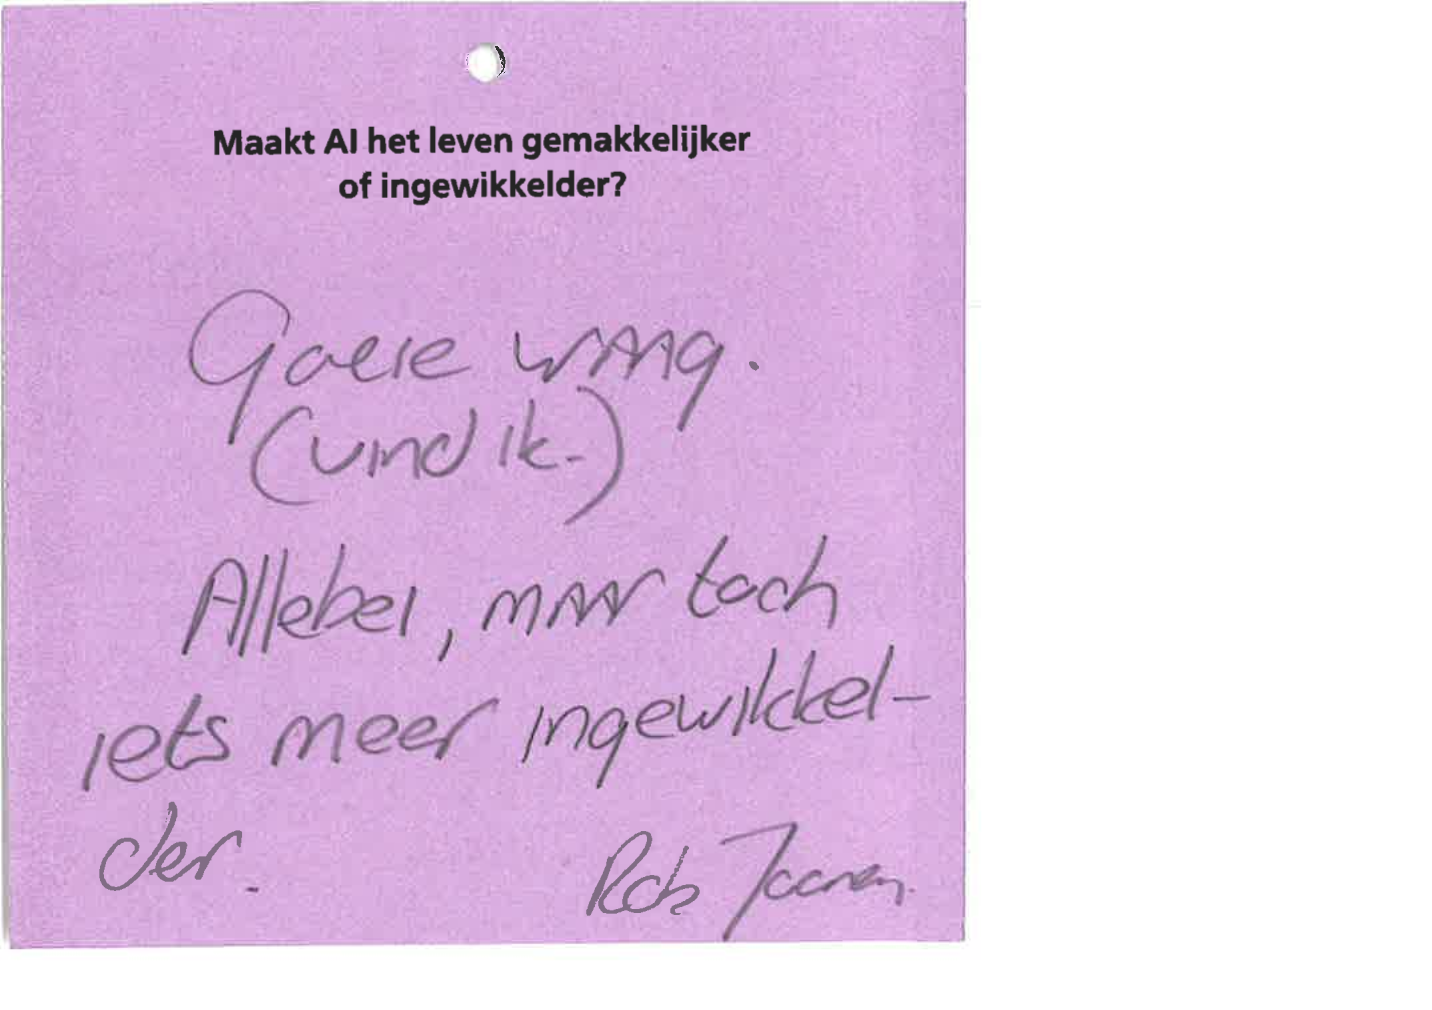 Maakt AI het leven gemakkelijker
of ingewikkelder?
Goeie vraag.
(vind ik.)
Allebei, maar toch
iets meer ingewikkel-
der.
Rob